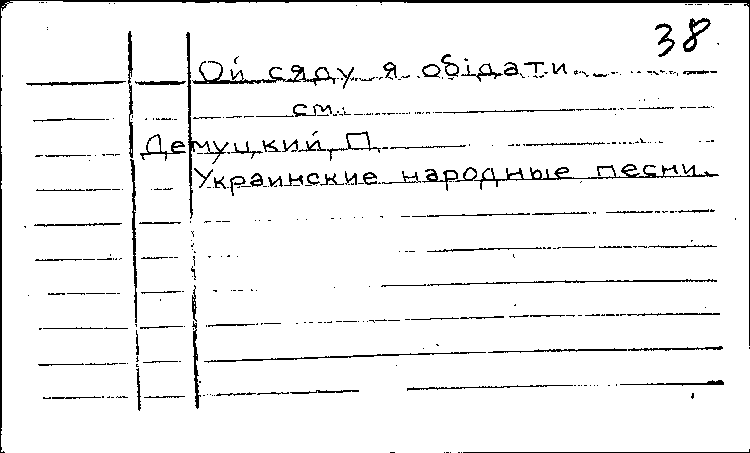 38
Ой сяду я обідати
см.
Демуцкий, П.
Украинские народные песни.